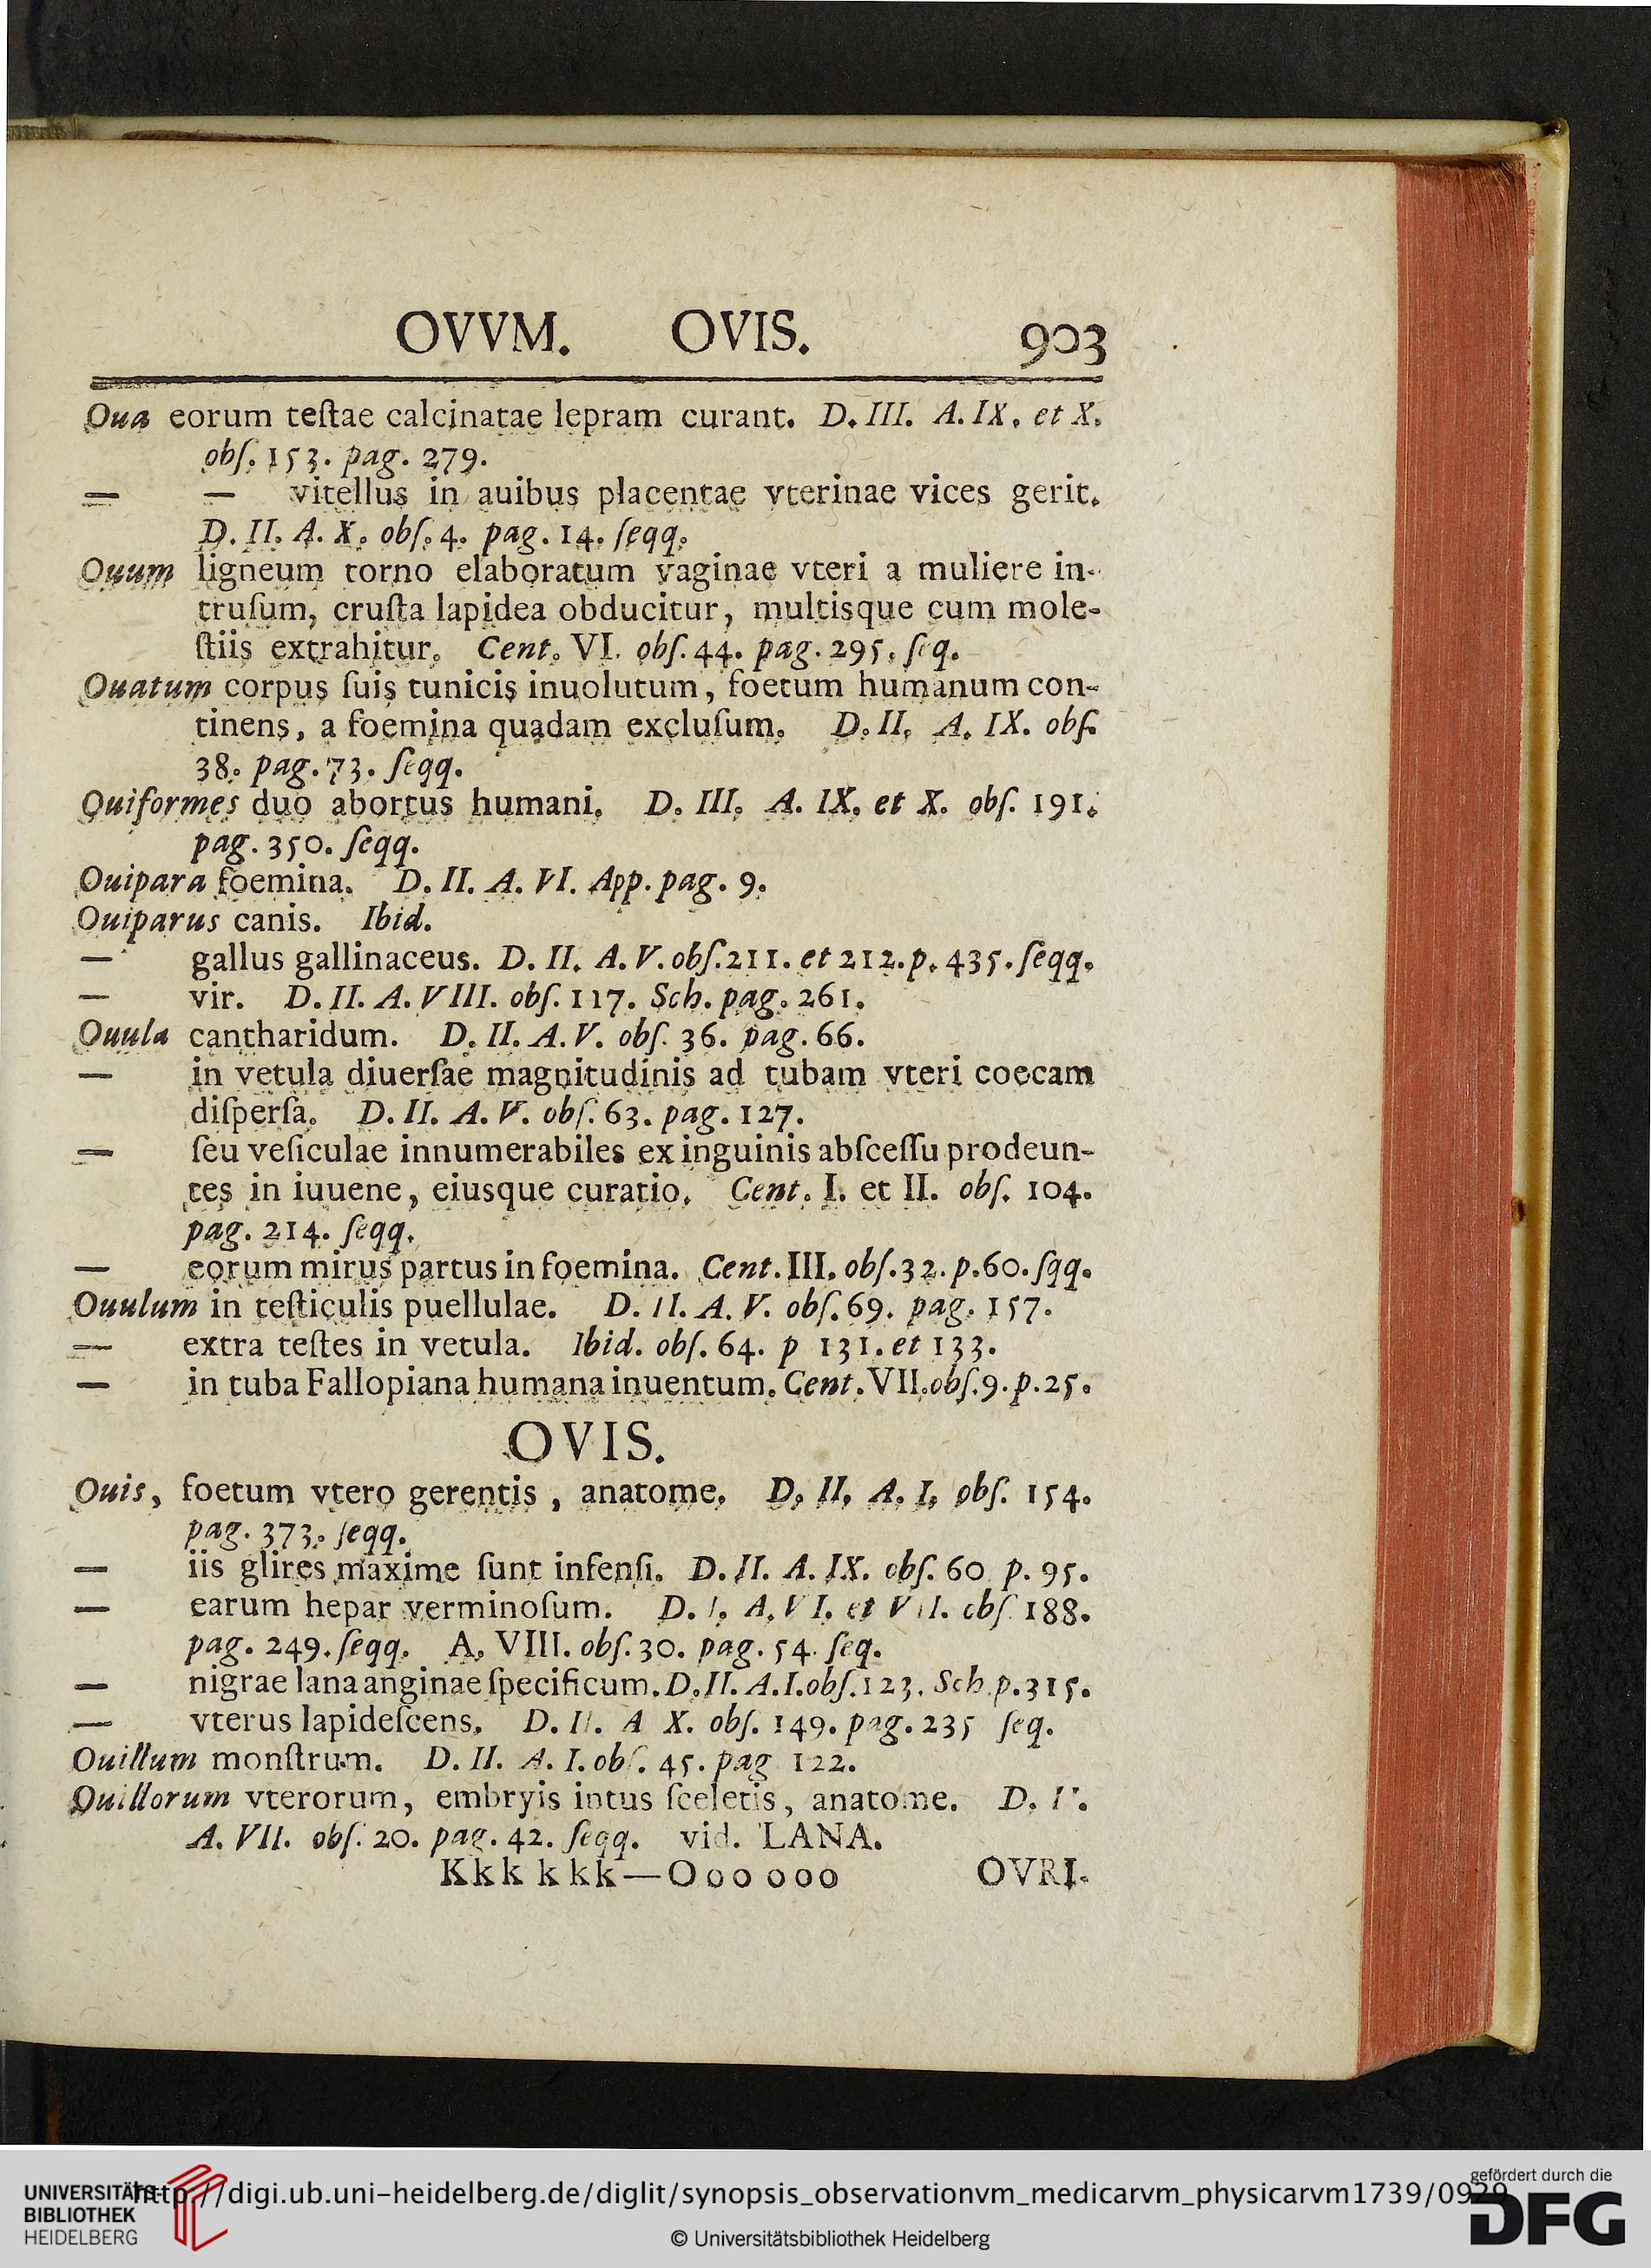 OVVM. OVIS. 903
Oua eorum teſtae calcinatae lepram curant. D. III. A. IX. et X.
obſ. 153. pag. 279.
— — vitellus in auibus placentae vterinae vices gerit.
D. II. A. X. obſ. 4. pag. 14. ſeqq.
Ouum ligneum torno elaboratum vaginae vteri a muliere in-
truſum, cruſta lapidea obducitur, multisque cum mole-
ſtiis extrahitur. Cent. VI. obſ. 44. pag. 295. ſeq.
Ouatum corpus ſuis tunicis inuolutum, foetum humanum con-
tinens, a foemina quadam excluſum. D. II. A. IX. obſ.
38. pag. 73. ſeqq.
Ouiformes duo abortus humani. D. III. A. IX. et X. obſ. 191.
pag. 350. ſeqq.
Ouipara foemina. D. II. A. VI. App. pag. 9.
Ouiparus canis. Ibid.
— gallus gallinaceus. D. II. A. V. obſ. 211. et 212. p. 435. ſeqq.
— vir. D. II. A. VIII. obſ. 117. Sch. pag. 261.
Ouula cantharidum. D. II. A. V. obſ. 36. pag. 66.
— in vetula diuerſae magnitudinis ad tubam vteri coecam
diſperſa. D. II. A. V. obſ. 63. pag. 127.
— ſeu veſiculae innumerabiles ex inguinis abſceſſu prodeun-
tes in iuuene, eiusque curatio. Cent. I. et II. obſ. 104.
pag. 214. ſeqq.
— eorum mirus partus in foemina. Cent. III. obſ. 32. p. 60. ſqq.
Ouulum in teſticulis puellulae. D. II. A. V. obſ. 69. pag. 157.
— extra teſtes in vetula. Ibid. obſ. 64. p 131. et 133.
— in tuba Fallopiana humana inuentum. Cent. VII. obſ. 9. p. 25.
OVIS.
Ouis, foetum vtero gerentis, anatome. D. II. A. I. obſ. 154.
pag. 373. ſeqq.
— iis glires maxime ſunt infenſi. D. II. A. IX. obſ. 60 p. 95.
— earum hepar verminoſum. D. I. A. VI. et VII. obſ 188.
pag. 249. ſeqq. A. VIII. obſ. 30. pag. 54. ſeq.
— nigrae lana anginae ſpecificum. D. II. A. I. obſ. 123. Sch. p. 315.
— vterus lapideſcens. D. II. A X. obſ. 149. pag. 235 ſeq.
Ouillum monſtrum. D. II. A. I. obſ. 45. pag 122.
Ouillorum vterorum, embryis intus ſceletis, anatome. D. II.
A. VII. obſ. 20. pag. 42. ſeqq. vid. LANA.
Kkk kkk—Ooo ooo OVRI-
gefördert durch die
UNIVERSITÄTS-
BIBLIOTHEK
HEIDELBERG
http://digi.ub.uni-heidelberg.de/diglit/synopsis_observationvm_medicarvm_physicarvm1739/0929
© Universitätsbibliothek Heidelberg
DFG